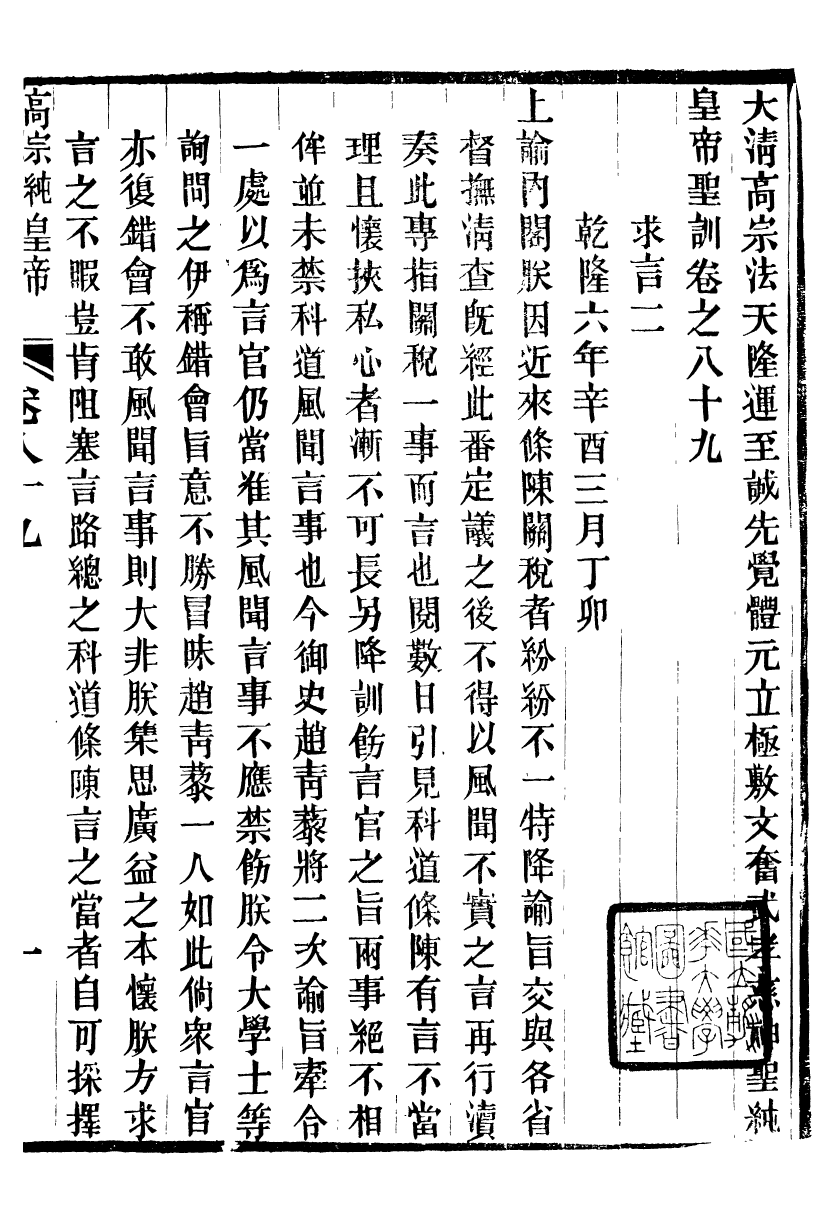 大清高宗法天隆運至誠先覺體元立極敷文奮武孝慈神聖純
皇帝聖訓卷之八十九
求言二
乾隆六年辛酉三月丁卯
上諭內閣朕因近來條陳關稅者紛紛不一特降諭旨交與各省
督撫清查旣經此番定議之後不得以風聞不實之言再行瀆
奏此專指關稅一事而言也閱數日引見科道條陳有言不當
理且懷挾私心者漸不可長另降訓飭言官之旨兩事絕不相
侔並未禁科道風聞言事也今御史趙靑藜將二次諭旨牽合
一處以爲言官仍當准其風聞言事不應禁飭朕令大學士等
詢問之伊稱錯會旨意不勝冒昧趙靑藜一人如此倘衆言官
亦復錯會不敢風聞言事則大非朕集思廣益之本懷朕方求
言之不暇豈肯阻塞言路總之科道條陳言之當者自可採擇
高宗純皇帝
卷八十九
一
國立清華大學圖書館藏